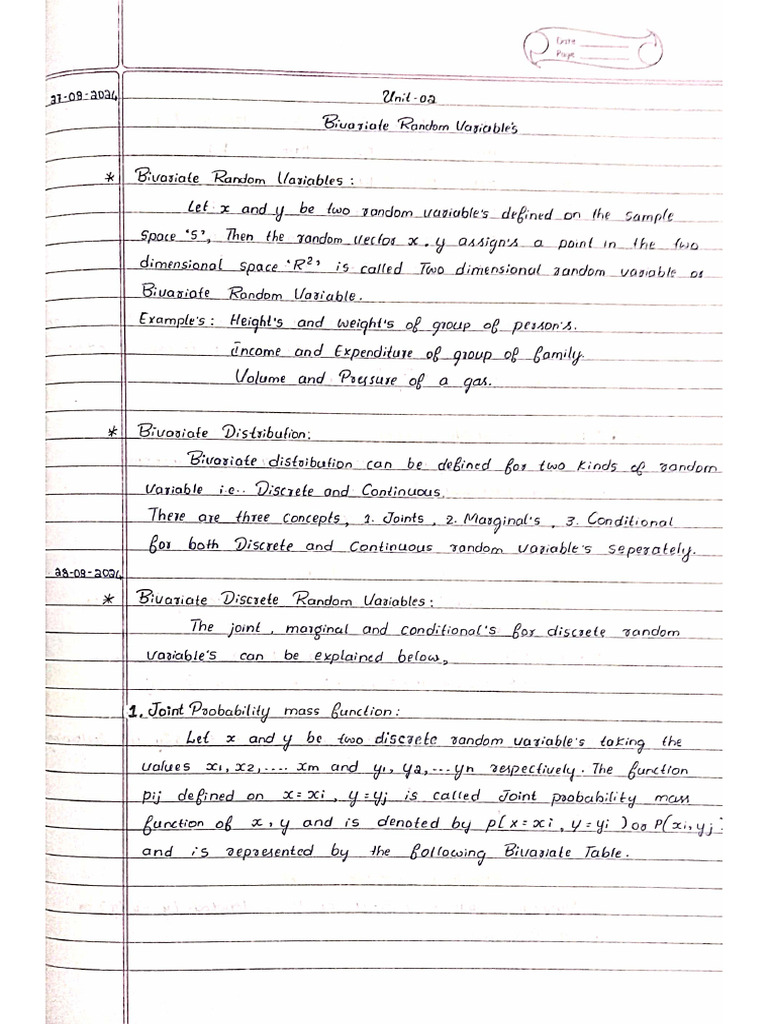 Date
Page
27-09-2024
Unit-02
Bivariate Random Variable's
* Bivariate Random Variables :
Let x and y be two random variable's defined on the sample
space 'S', Then the random vector x, y assign's a point in the two
dimensional space 'R²' is called Two dimensional random variable or
Bivariate Random Variable.
Example's : Height's and weight's of group of person's.
Income and Expenditure of group of family.
Volume and Pressure of a gas.
* Bivariate Distribution:
Bivariate distribution can be defined for two kinds of random
variable i.e.. Discrete and Continuous.
There are three concepts, 1. Joints, 2. Marginal's, 3. Conditional
for both Discrete and Continuous random variable's seperately.
28-09-2024
* Bivariate Discrete Random Variables :
The joint, marginal and conditional's for discrete random
variable's can be explained below,
1. Joint Probability mass function :
Let x and y be two discrete random variable's taking the
values x1, x2, .... xm and y1, y2, ... yn respectively. The function
pij defined on x = xi, y = yj is called Joint probability mass
function of x, y and is denoted by p(x = xi, y = yi) or P(xi, yj)
and is represented by the following Bivariate Table.